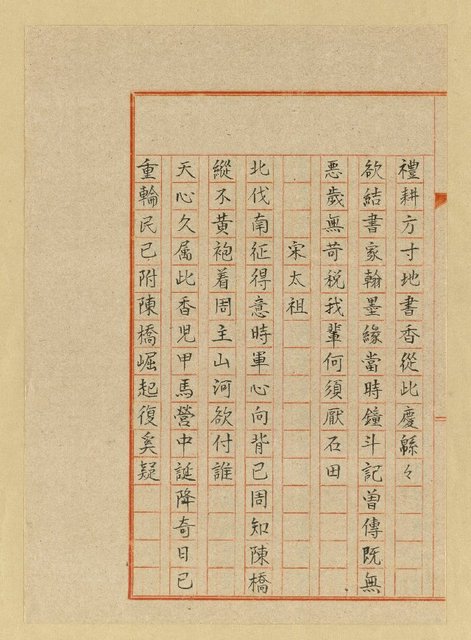 禮耕方寸地書香從此慶緜々
欲結書家翰墨緣當時鐘斗記曽傳既無
悪歲無苛税我輩何須厭石田
宋太祖
北伐南征得意時軍心向背已周知陳橋
縱不黄袍着周主山河欲付誰
天心久属此香児甲馬營中誕降奇日已
重輪民已附陳橋崛起復奚疑